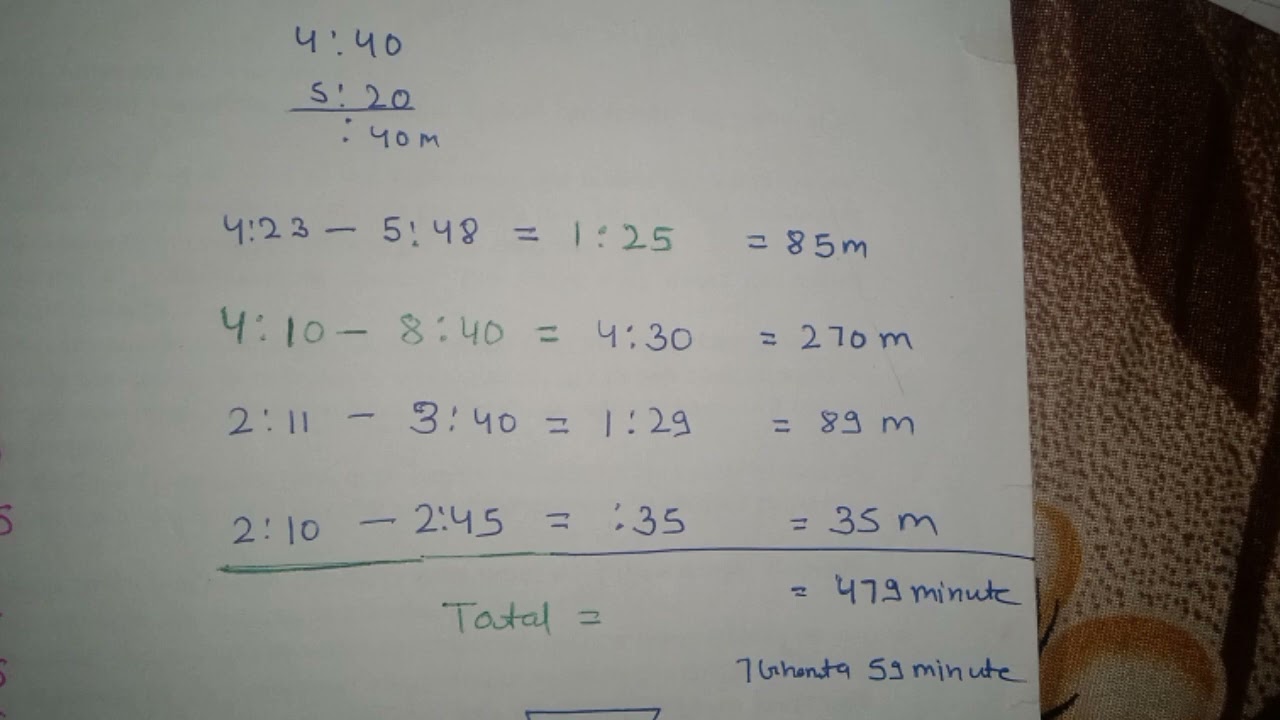 4:40
5:20
:40m
4:23 – 5:48 = 1:25 = 85m
4:10 – 8:40 = 4:30 = 270 m
2:11 – 3:40 = 1:29 = 89 m
2:10 – 2:45 = :35 = 35 m
= 479 minute
Total =
7 Ghanta 59 minute